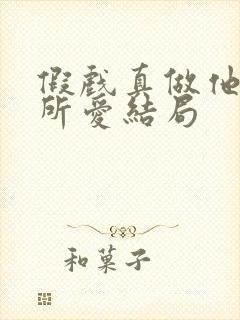 假戲真做他
所愛結局
和菓子